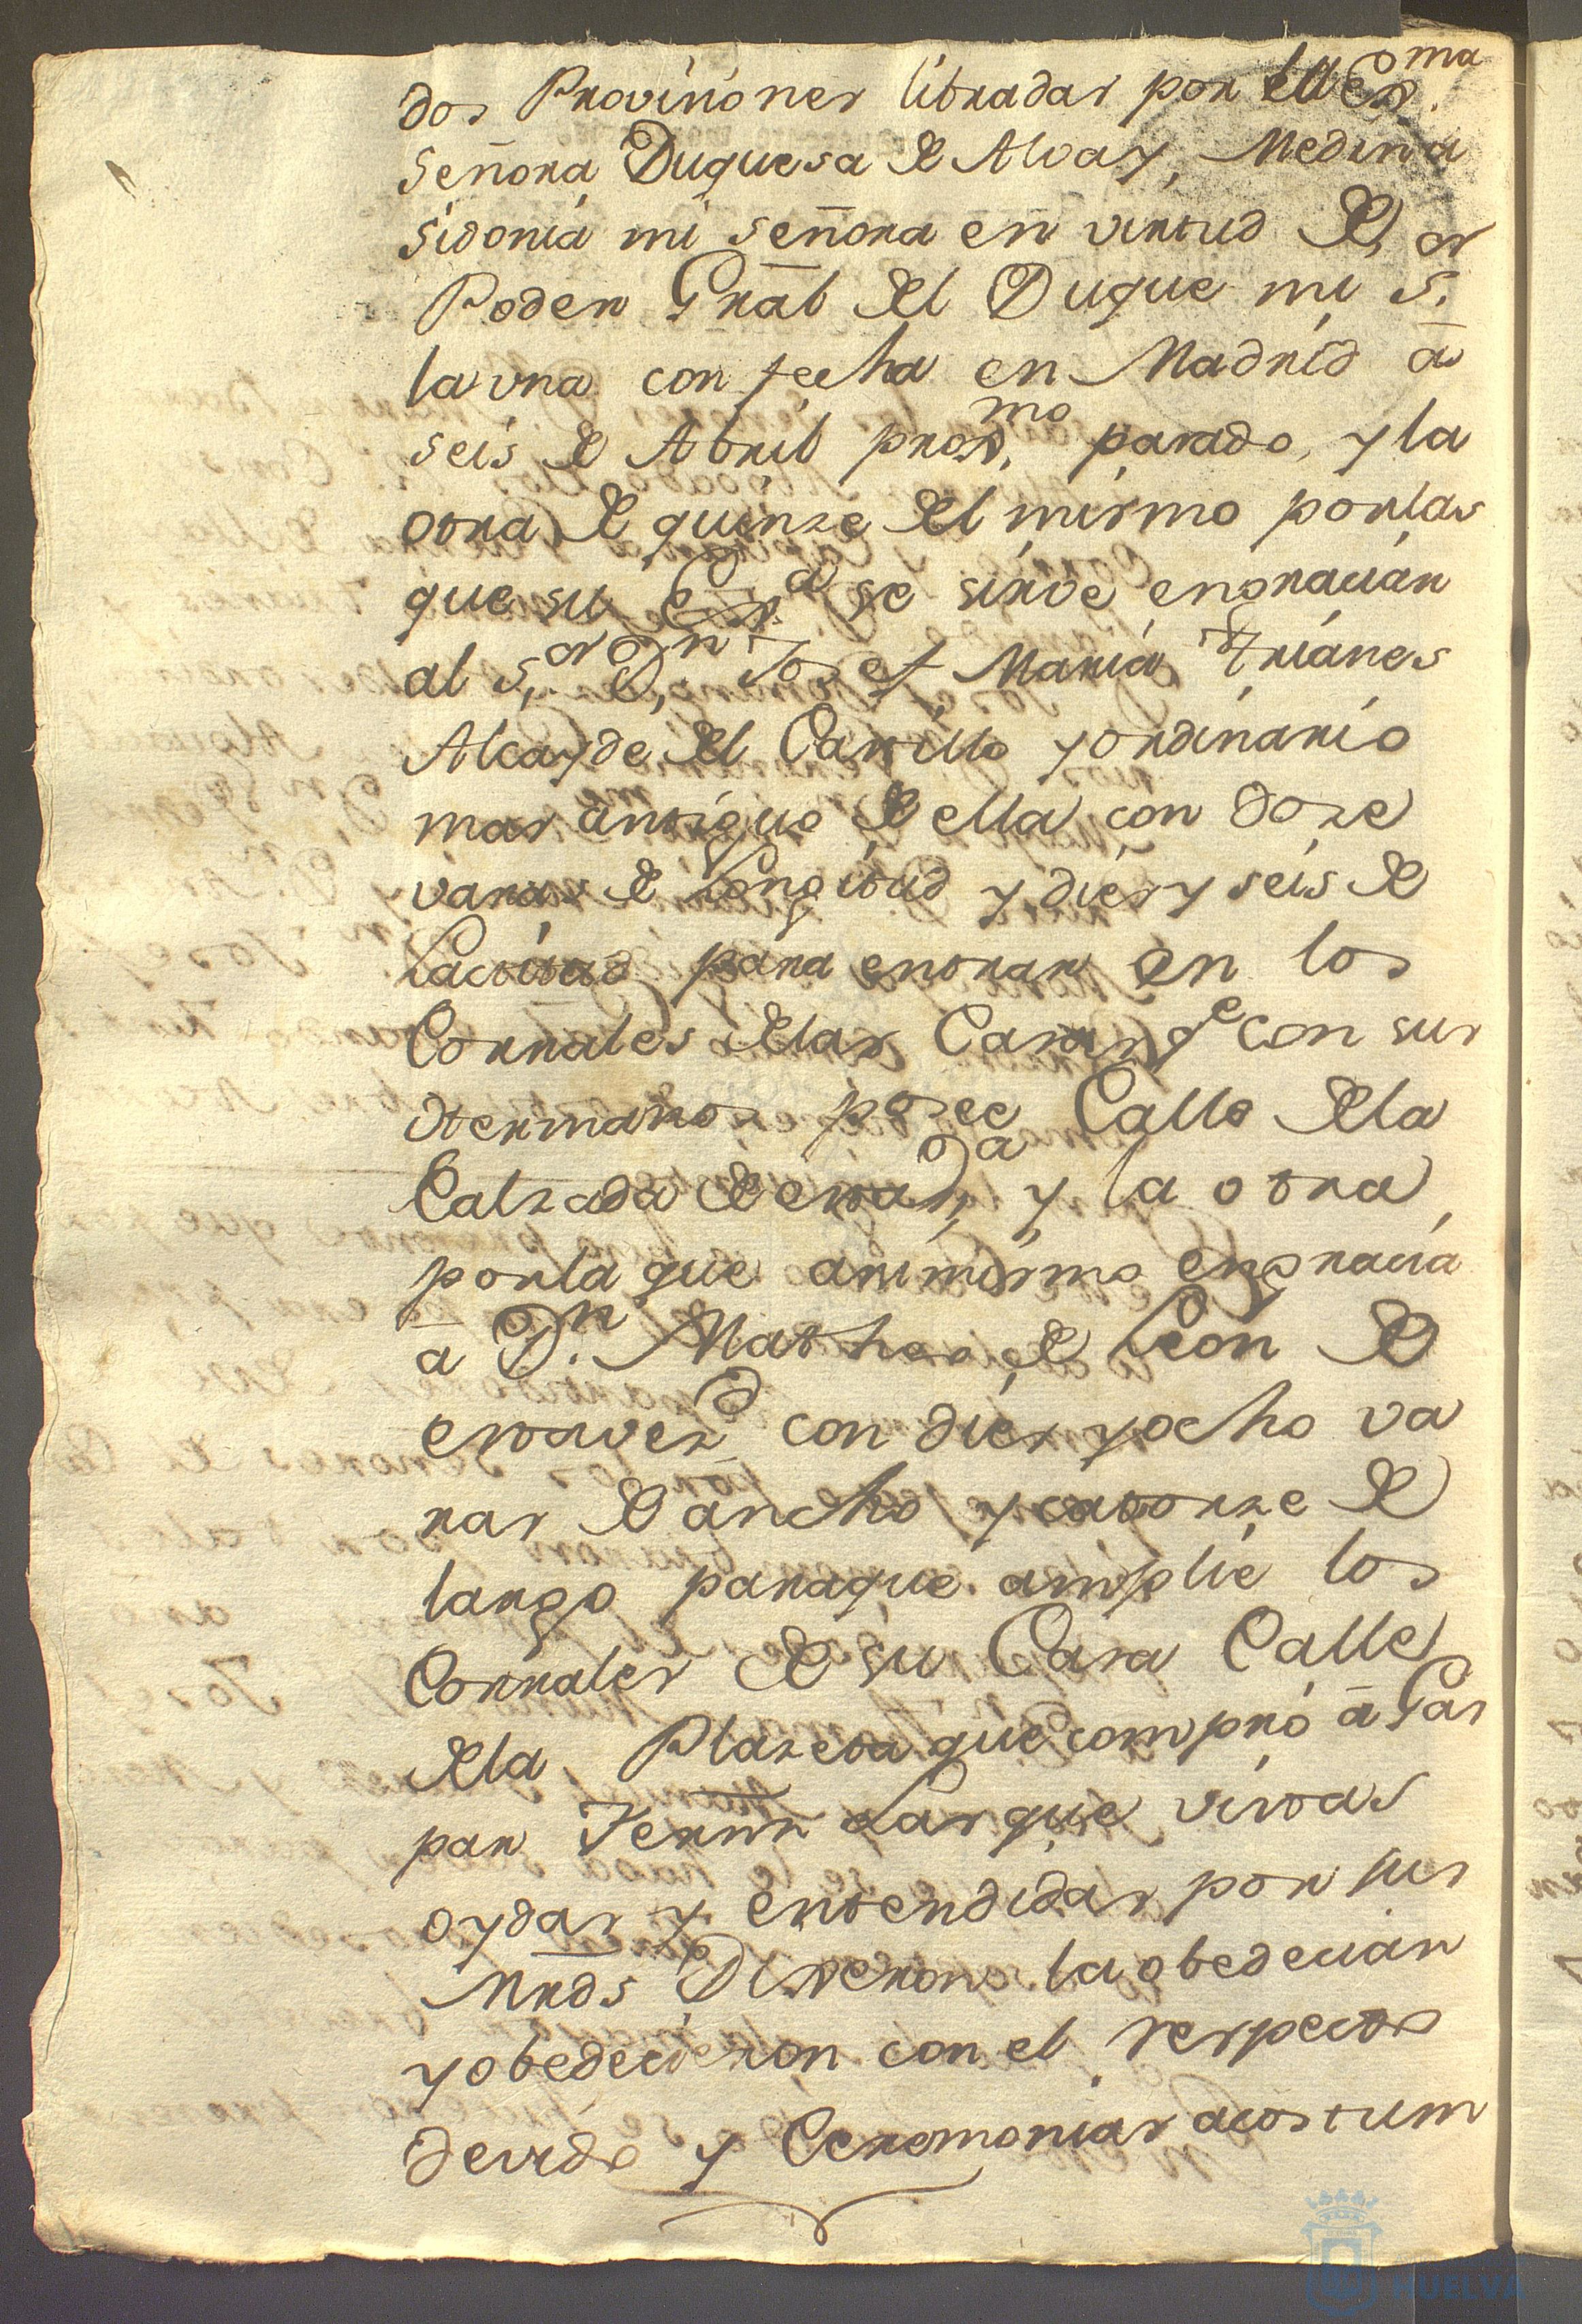 dos Provisiones libradas por la Exma.
Señora Duquesa de Alva y, Medina
Sidonia mi señora en virtud de
Poder Gral del Duque mi S.or
la vna con fecha en Madrid a
seis de Abril prox.mo pasado, y la
otra de quinze del mismo por las
que su Ex.a se sirve engraciar
al S.or D.n Josef Maria Trianes
Alcayde del Castillo y ordinario
mas antiguo de ella con doze
varas de Longitud y diez y seis de
Lactitud para entrar en los
Corrales de las Casas q.e con sus
Hermanos posee Calle de la
Calzada de esta V.a y la otra
por la que asimismo engracia
a D.n Matheo de Leon de
esta vez.d con diez y ocho va
ras de ancho y catorze de
largo para que amplie los
Corrales de su Casa Calle
de la Plazeta que compró à Gas
par Fernz Las que vistas
oydas y entendidas por sus
Mrds Dixeron las obedecian
y obedecieron con el respecto
devido y Ceremonias acostum
HUELVA